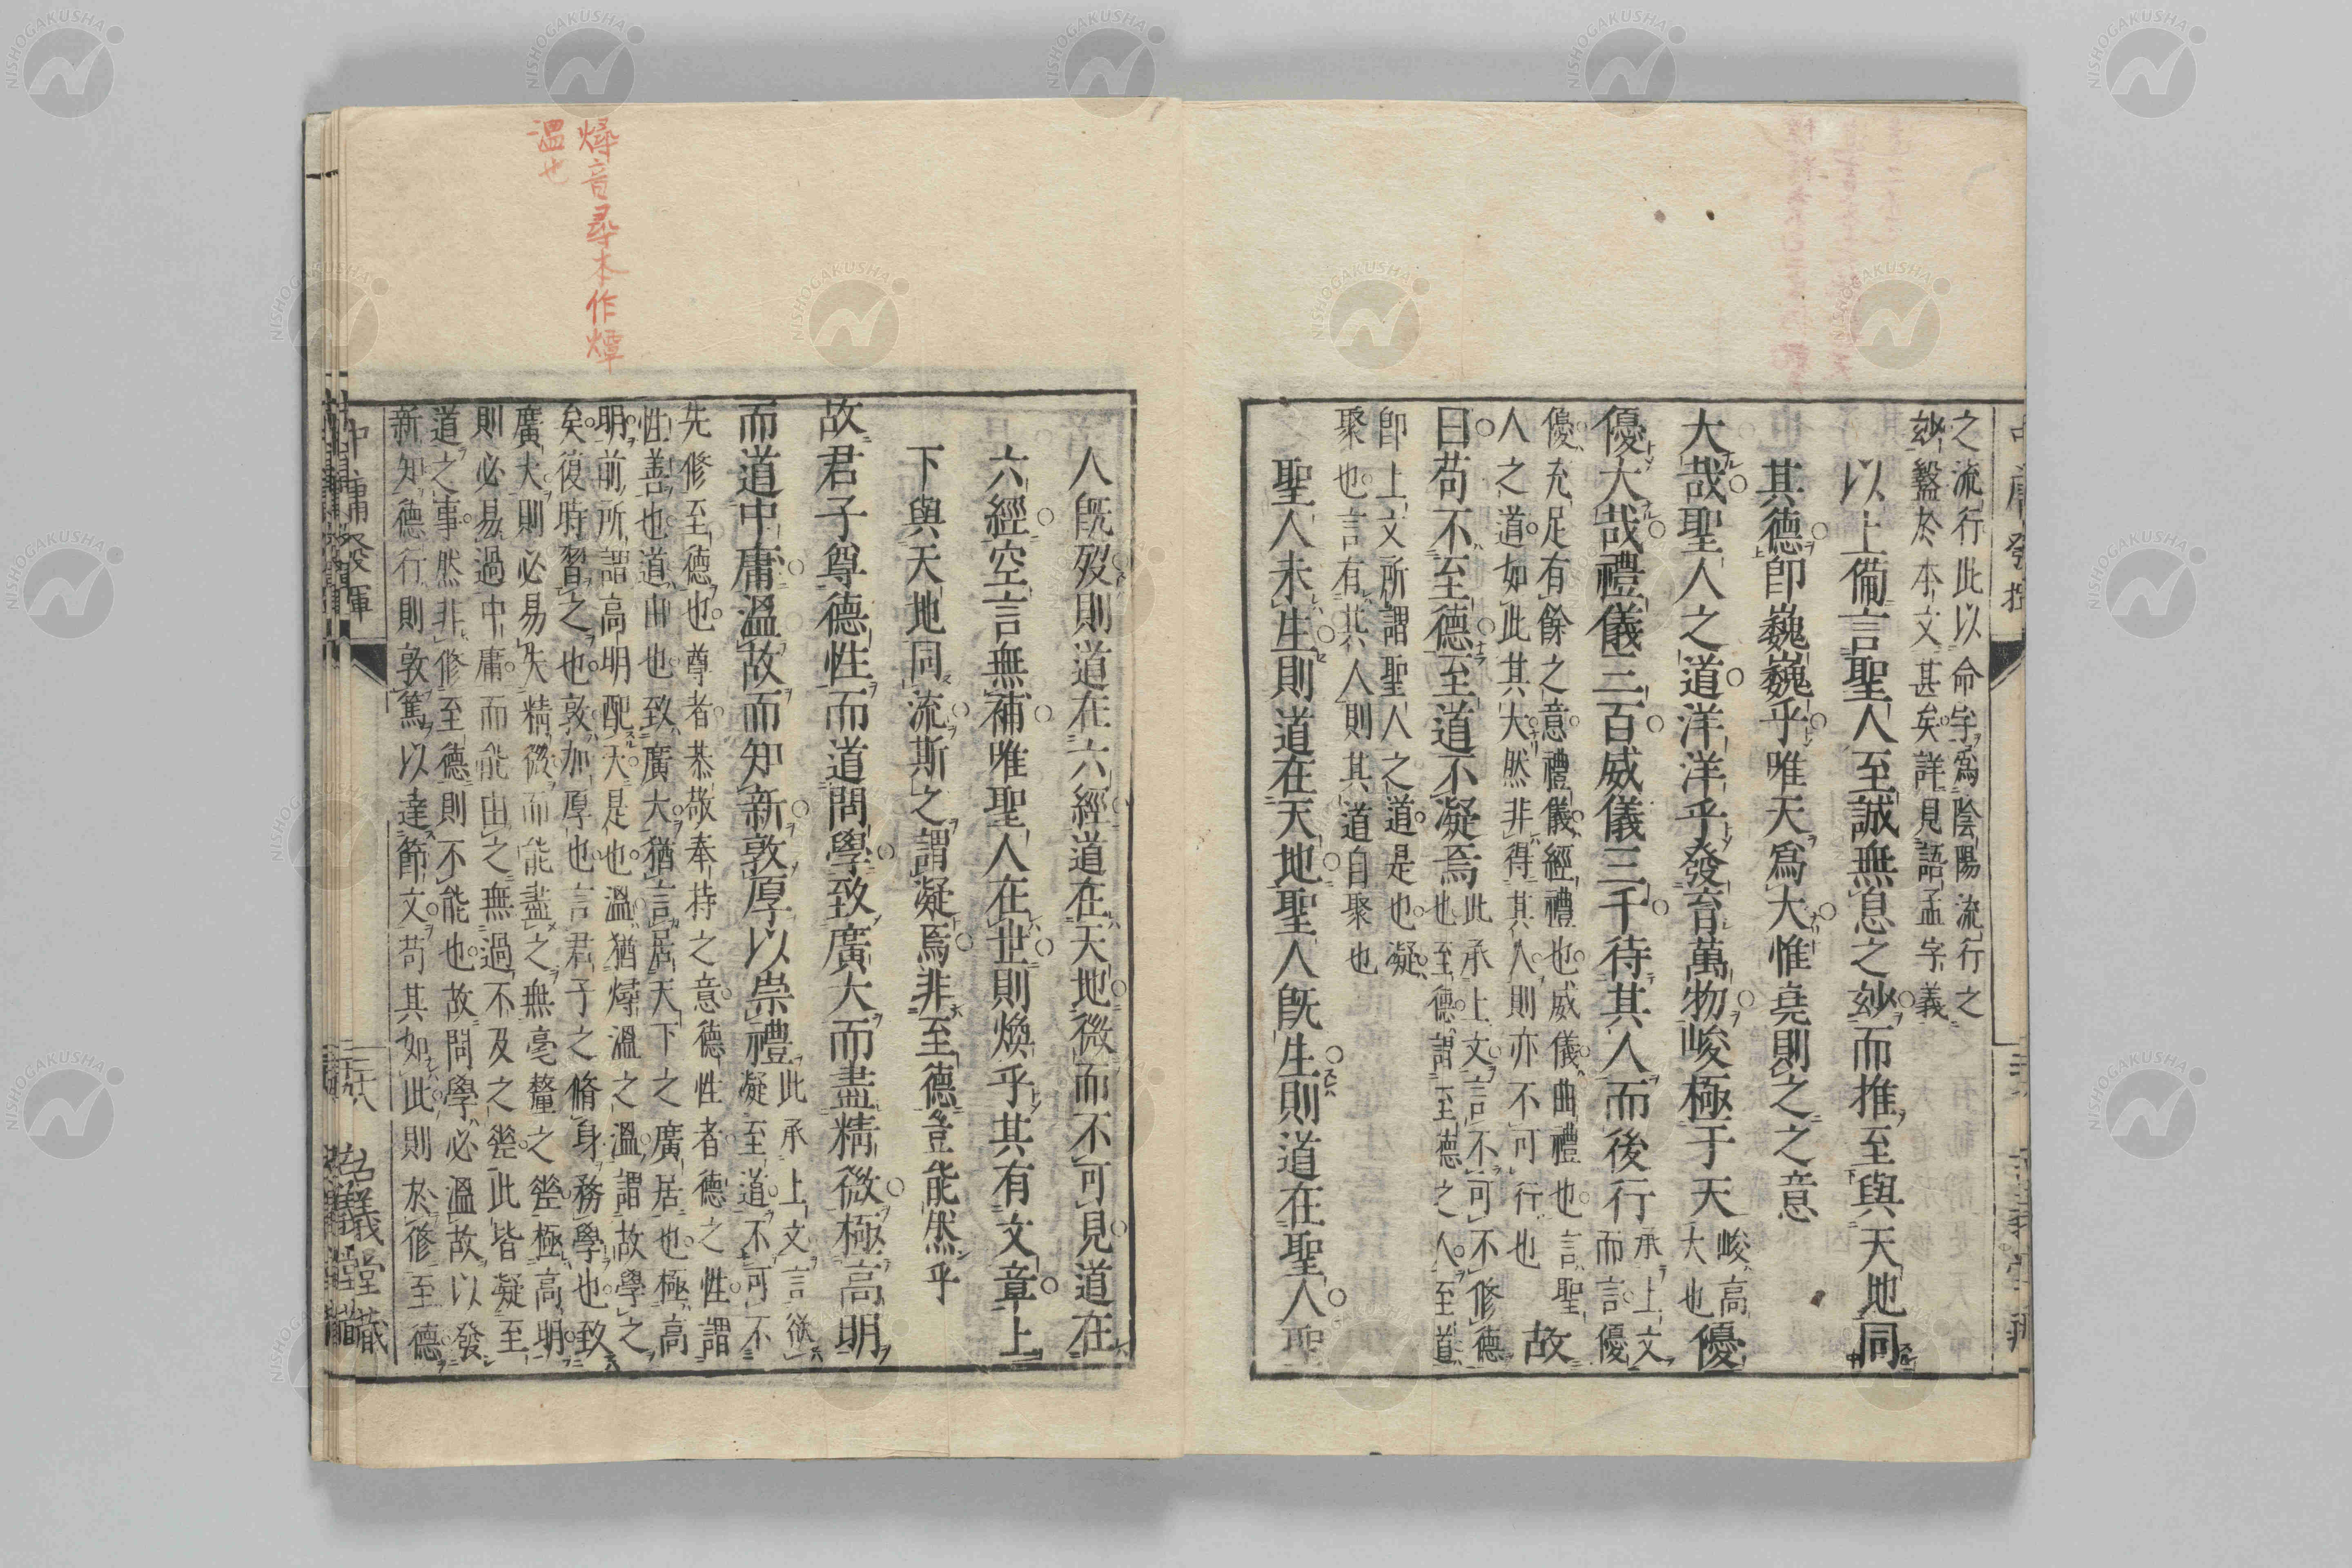 之流行此以命字爲陰陽流行之
妙盭於本文甚矣詳見語孟字義
以上備言聖人至誠無息之妙而推至與天地同
其德卽巍巍乎唯天爲大惟堯則之之意
大哉聖人之道洋洋乎發育萬物峻極于天
峻高
大也
優
優大哉禮儀三百威儀三千待其人而後行
承上文
而言優
優充足有餘之意禮儀經禮也威儀曲禮也言聖
人之道如此其大然非得其人則亦不可行也
故
曰苟不至德至道不凝焉
此承上文言不可不修德
也至德謂至德之人至道
卽上文所謂聖人之道是也凝
聚也言有其人則其道自聚也
聖人未生則道在天地聖人旣生則道在聖人聖
人旣歿則道在六經道在天地微而不可見道在
六經空言無補唯聖人在世則煥乎其有文章上
下與天地同流斯之謂凝焉非至德豈能然乎
故君子尊德性而道問學致廣大而盡精微極高明
而道中庸溫故而知新敦厚以崇禮
此承上文言欲
凝至道不可不
先修至德也尊者恭敬奉持之意德性者德之性謂
性善也道由也致廣大猶言居天下之廣居也極高
明前所謂高明配天是也溫猶燖溫之溫謂故學之
矣復時習之也敦加厚也言君子之脩身務學也致
廣大則必易失精微而能盡之無毫釐之差極高明
則必易過中庸而能由之無過不及之差此皆凝至
道之事然非修至德則不能也故問學必溫故以發
新知德行則敦篤以達節文苟其如此則於修至德
中庸發揮
三十六
古義堂藏
燖音尋本作燂
溫也